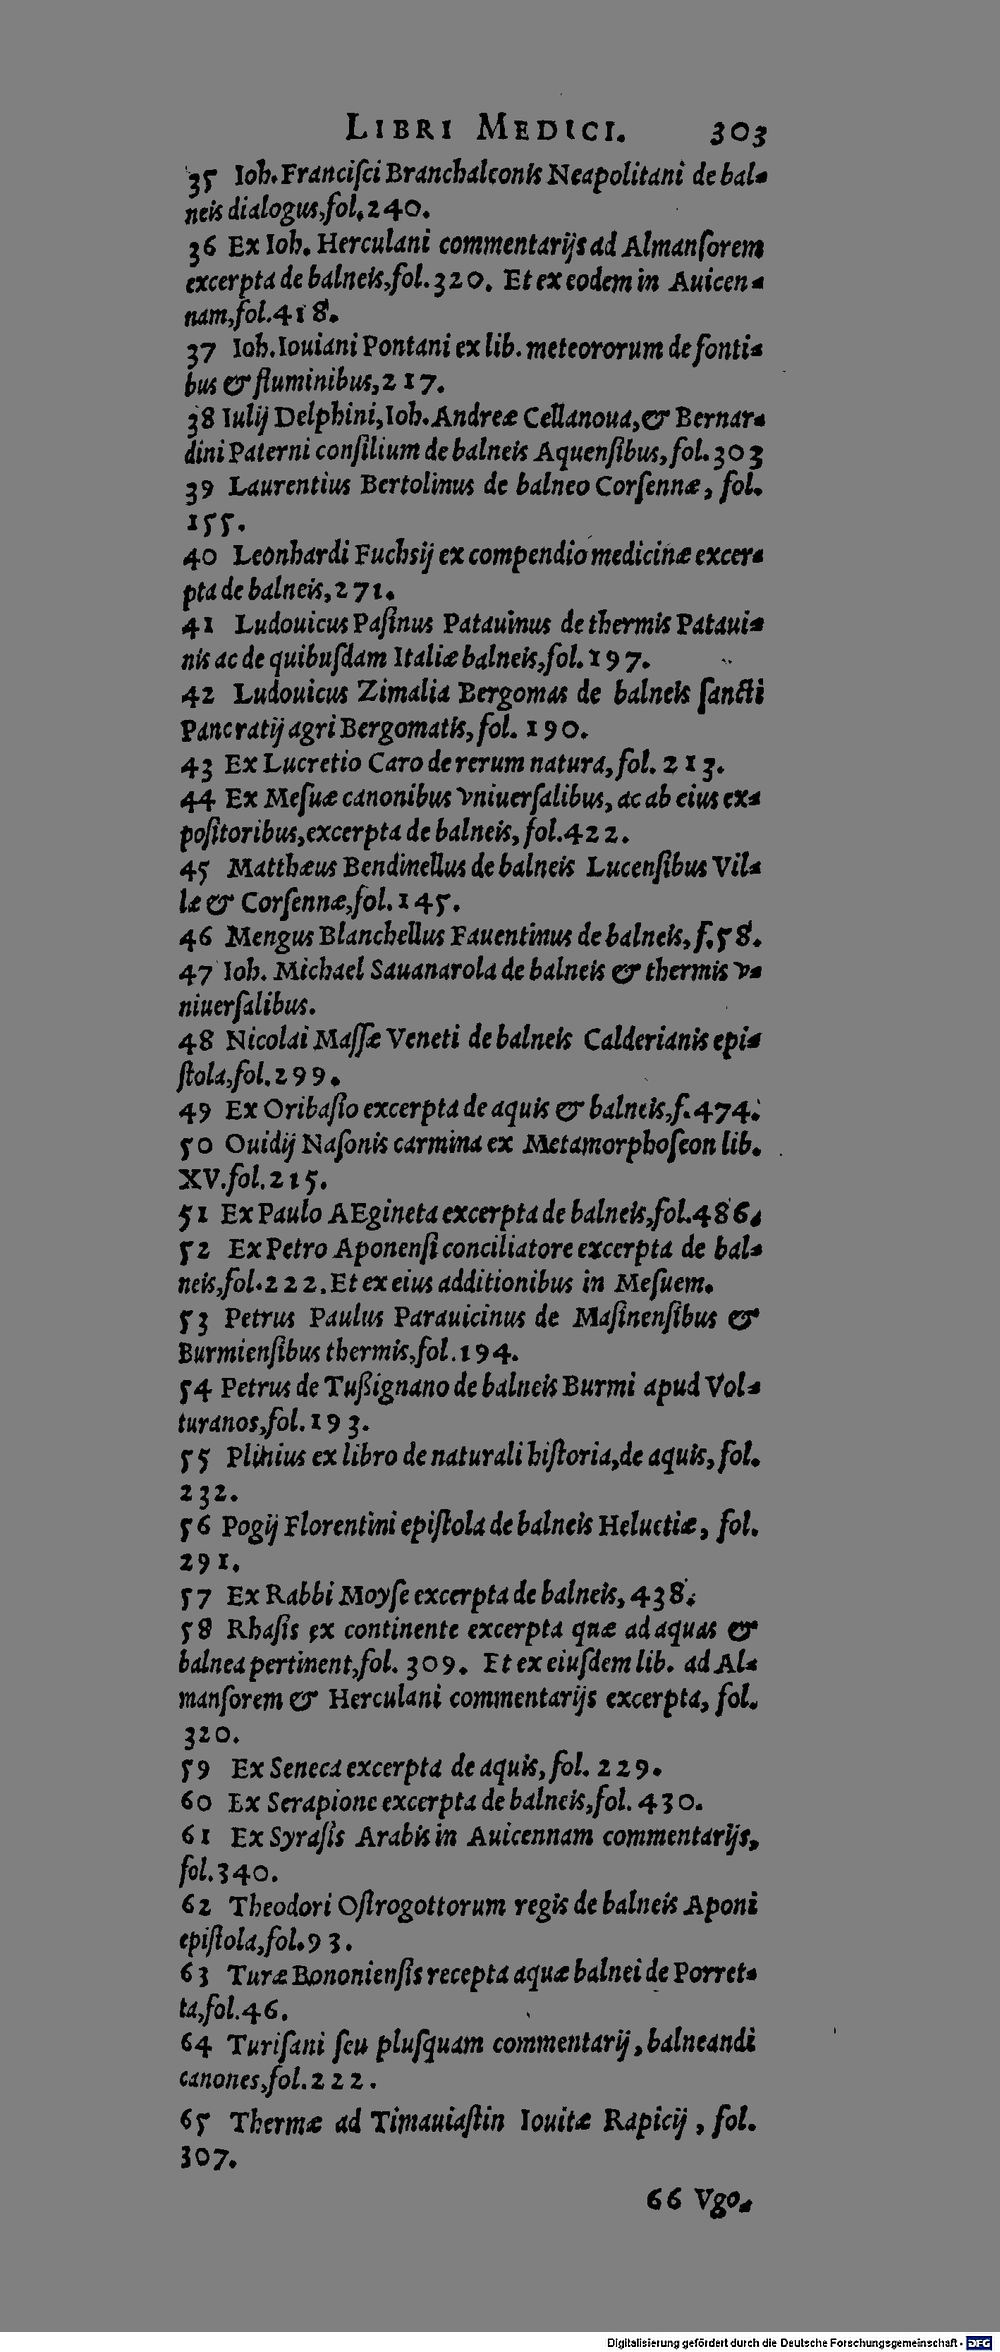 LIBRI MEDICI. 303
35 Ioh. Franciſci Branchalconis Neapolitani de bal-
neis dialogus, fol. 240.
36 Ex Ioh. Herculani commentarijs ad Almanſorem
excerpta de balneis, fol. 320. Et ex eodem in Auicen-
nam, fol. 418.
37 Ioh. Iouiani Pontani ex lib. meteororum de fonti-
bus & fluminibus, 217.
38 Iulij Delphini, Ioh. Andreæ Cellanoua, & Bernar-
dini Paterni conſilium de balneis Aquenſibus, fol. 303
39 Laurentius Bertolinus de balneo Corſennæ, fol.
155.
40 Leonhardi Fuchsij ex compendio medicinæ excer-
pta de balneis, 271.
41 Ludouicus Paſinus Patauinus de thermis Pataui-
nis ac de quibuſdam Italiæ balneis, fol. 197.
42 Ludouicus Zimalia Bergomas de balneis ſancti
Pancratij agri Bergomatis, fol. 190.
43 Ex Lucretio Caro de rerum natura, fol. 213.
44 Ex Meſuæ canonibus vniuerſalibus, ac ab eius ex-
poſitoribus, excerpta de balneis, fol. 422.
45 Matthæus Bendinellus de balneis Lucenſibus Vil-
læ & Corſennæ, fol. 145.
46 Mengus Blanchellus Fauentinus de balneis, f. 58.
47 Ioh. Michael Sauanarola de balneis & thermis v-
niuerſalibus.
48 Nicolai Maſſæ Veneti de balneis Calderianis epi-
ſtola, fol. 299.
49 Ex Oribaſio excerpta de aquis & balneis, f. 474.
50 Ouidij Naſonis carmina ex Metamorphoſeon lib.
XV. fol. 215.
51 Ex Paulo AEgineta excerpta de balneis, fol. 486.
52 Ex Petro Aponenſi conciliatore excerpta de bal-
neis, fol. 222. Et ex eius additionibus in Meſuem.
53 Petrus Paulus Parauicinus de Maſinenſibus &
Burmienſibus thermis, fol. 194.
54 Petrus de Tußignano de balneis Burmi apud Vol-
turanos, fol. 193.
55 Plinius ex libro de naturali hiſtoria, de aquis, fol.
232.
56 Pogij Florentini epiſtola de balneis Heluetiæ, fol.
291.
57 Ex Rabbi Moyſe excerpta de balneis, 438.
58 Rhaſis ex continente excerpta quæ ad aquas &
balnea pertinent, fol. 309. Et ex eiuſdem lib. ad Al-
manſorem & Herculani commentarijs excerpta, fol.
320.
59 Ex Seneca excerpta de aquis, fol. 229.
60 Ex Serapione excerpta de balneis, fol. 430.
61 Ex Syraſis Arabis in Auicennam commentarijs,
fol. 340.
62 Theodori Oſtrogottorum regis de balneis Aponi
epiſtola, fol. 93.
63 Turæ Bononienſis recepta aquæ balnei de Porret-
ta, fol. 46.
64 Turiſani ſeu pluſquam commentarij, balneandi
canones, fol. 222.
65 Thermæ ad Timauiaſtin Iouitæ Rapicij, fol.
307.
66 Vgo-
Digitalisierung gefördert durch die Deutsche Forschungsgemeinschaft - DFG